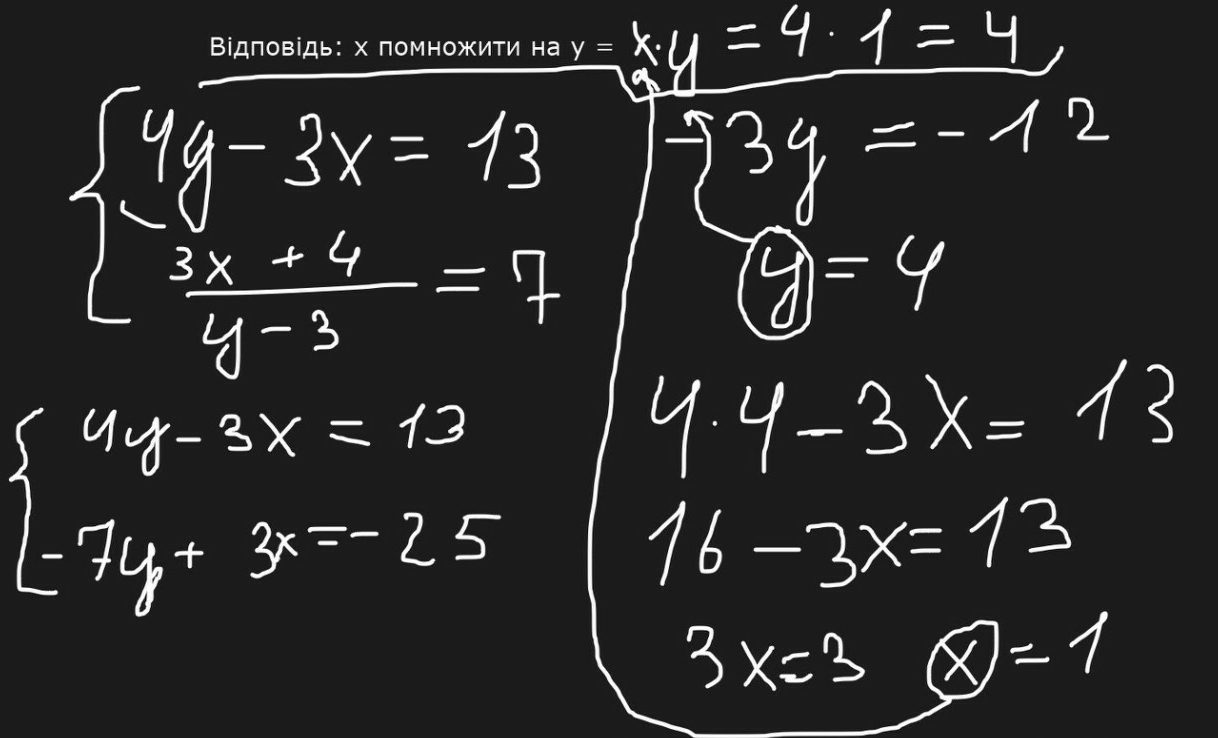 Відповідь: x помножити на y = x·y = 4 · 1 = 4
4y - 3x = 13
3x + 4
y - 3
= 7
4y - 3x = 13
-7y + 3x = -25
-3y = -12
y = 4
4·4 - 3x = 13
16 - 3x = 13
3x = 3 x = 1